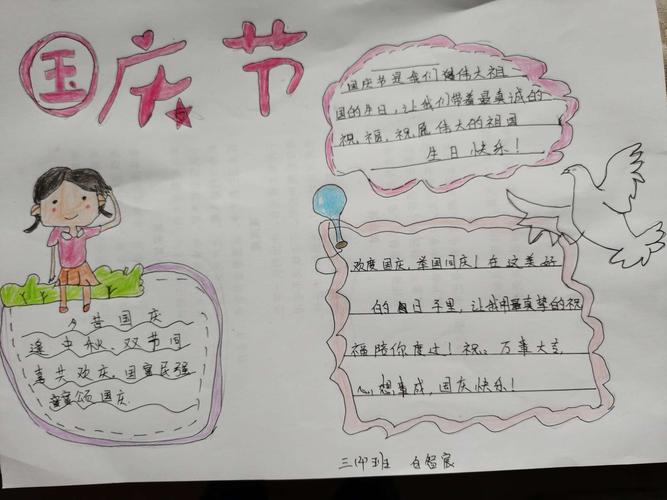 国庆节
国庆节是我们伟大祖
国的生日，让我们带着最真诚的
祝福，祝愿伟大的祖国
生日快乐！
欢度国庆，举国同庆！在这美好
的日子里，让我用最真挚的祝
福陪你度过！祝：万事大吉，
心想事成，国庆快乐！
今昔国庆
逢中秋，双节同
喜共欢庆，国富民强
颂国庆.
三(4)班 白智宸